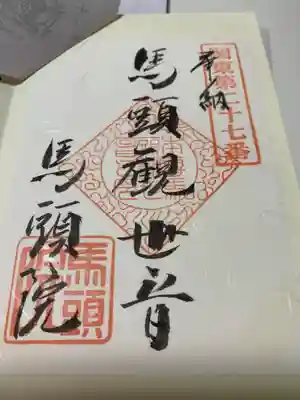 奉納
関東第二十七番
馬頭観世音
馬頭院
馬頭院